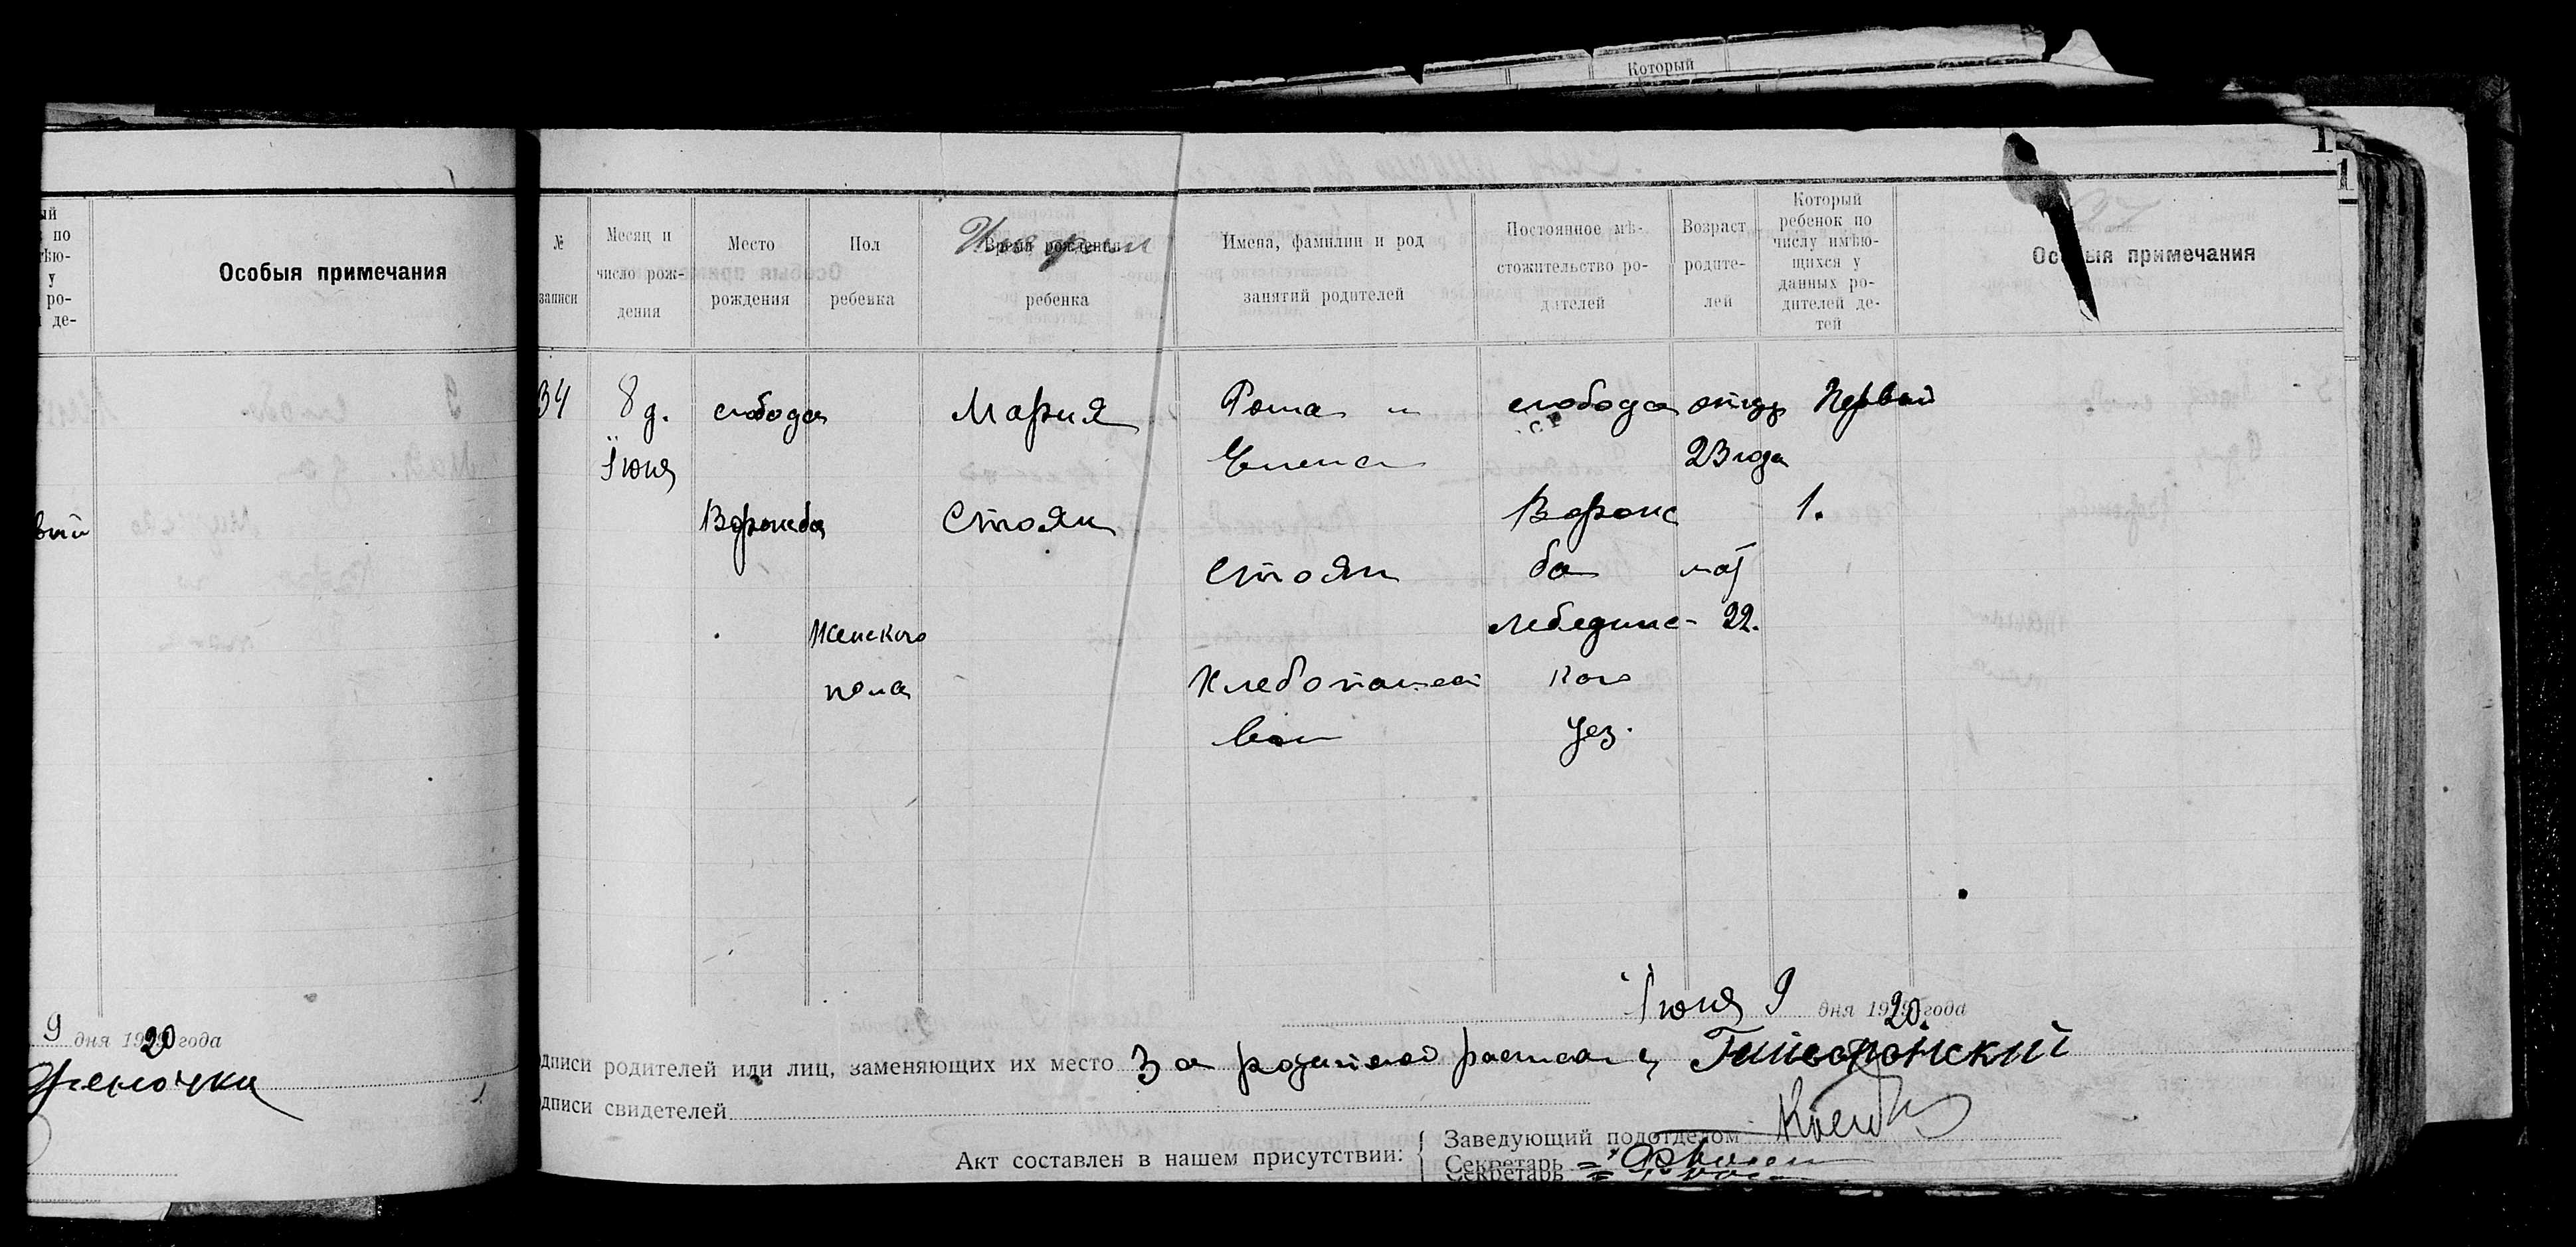 Который
ый
по
ѣю-
у
ро-
де-
Особыя примечания
вый
9 дня 1920 года
№
записи
Месяц и
число рож-
дения
Место
рождения
Пол
ребенка
Время рождения
ребенка
Имена, фамилии и род
занятий родителей
Постоянное мѣ-
стожительство ро-
дителей
Возраст
родите-
лей
Который
ребенок по
числу имѣю-
щихся у
данных ро-
дителей де-
тей
Особыя примечания
1
34
8 д.
Iюня
слобода
Ворожба
Женского
пола
Мария
Стоян
Фома и
Елена
Стоян
Хлебопаше
слобода
Вороже
ба
Лебединс-
кого
уез.
отцу
23 года
мат
22.
Первый
1.
Iюня 9 дня 1920 года
дписи родителей или лиц, заменяющих их место За родителей
дписи свидетелей
Акт составлен в нашем присутствии:
Заведующий подотделом
Секретарь
Секретарь